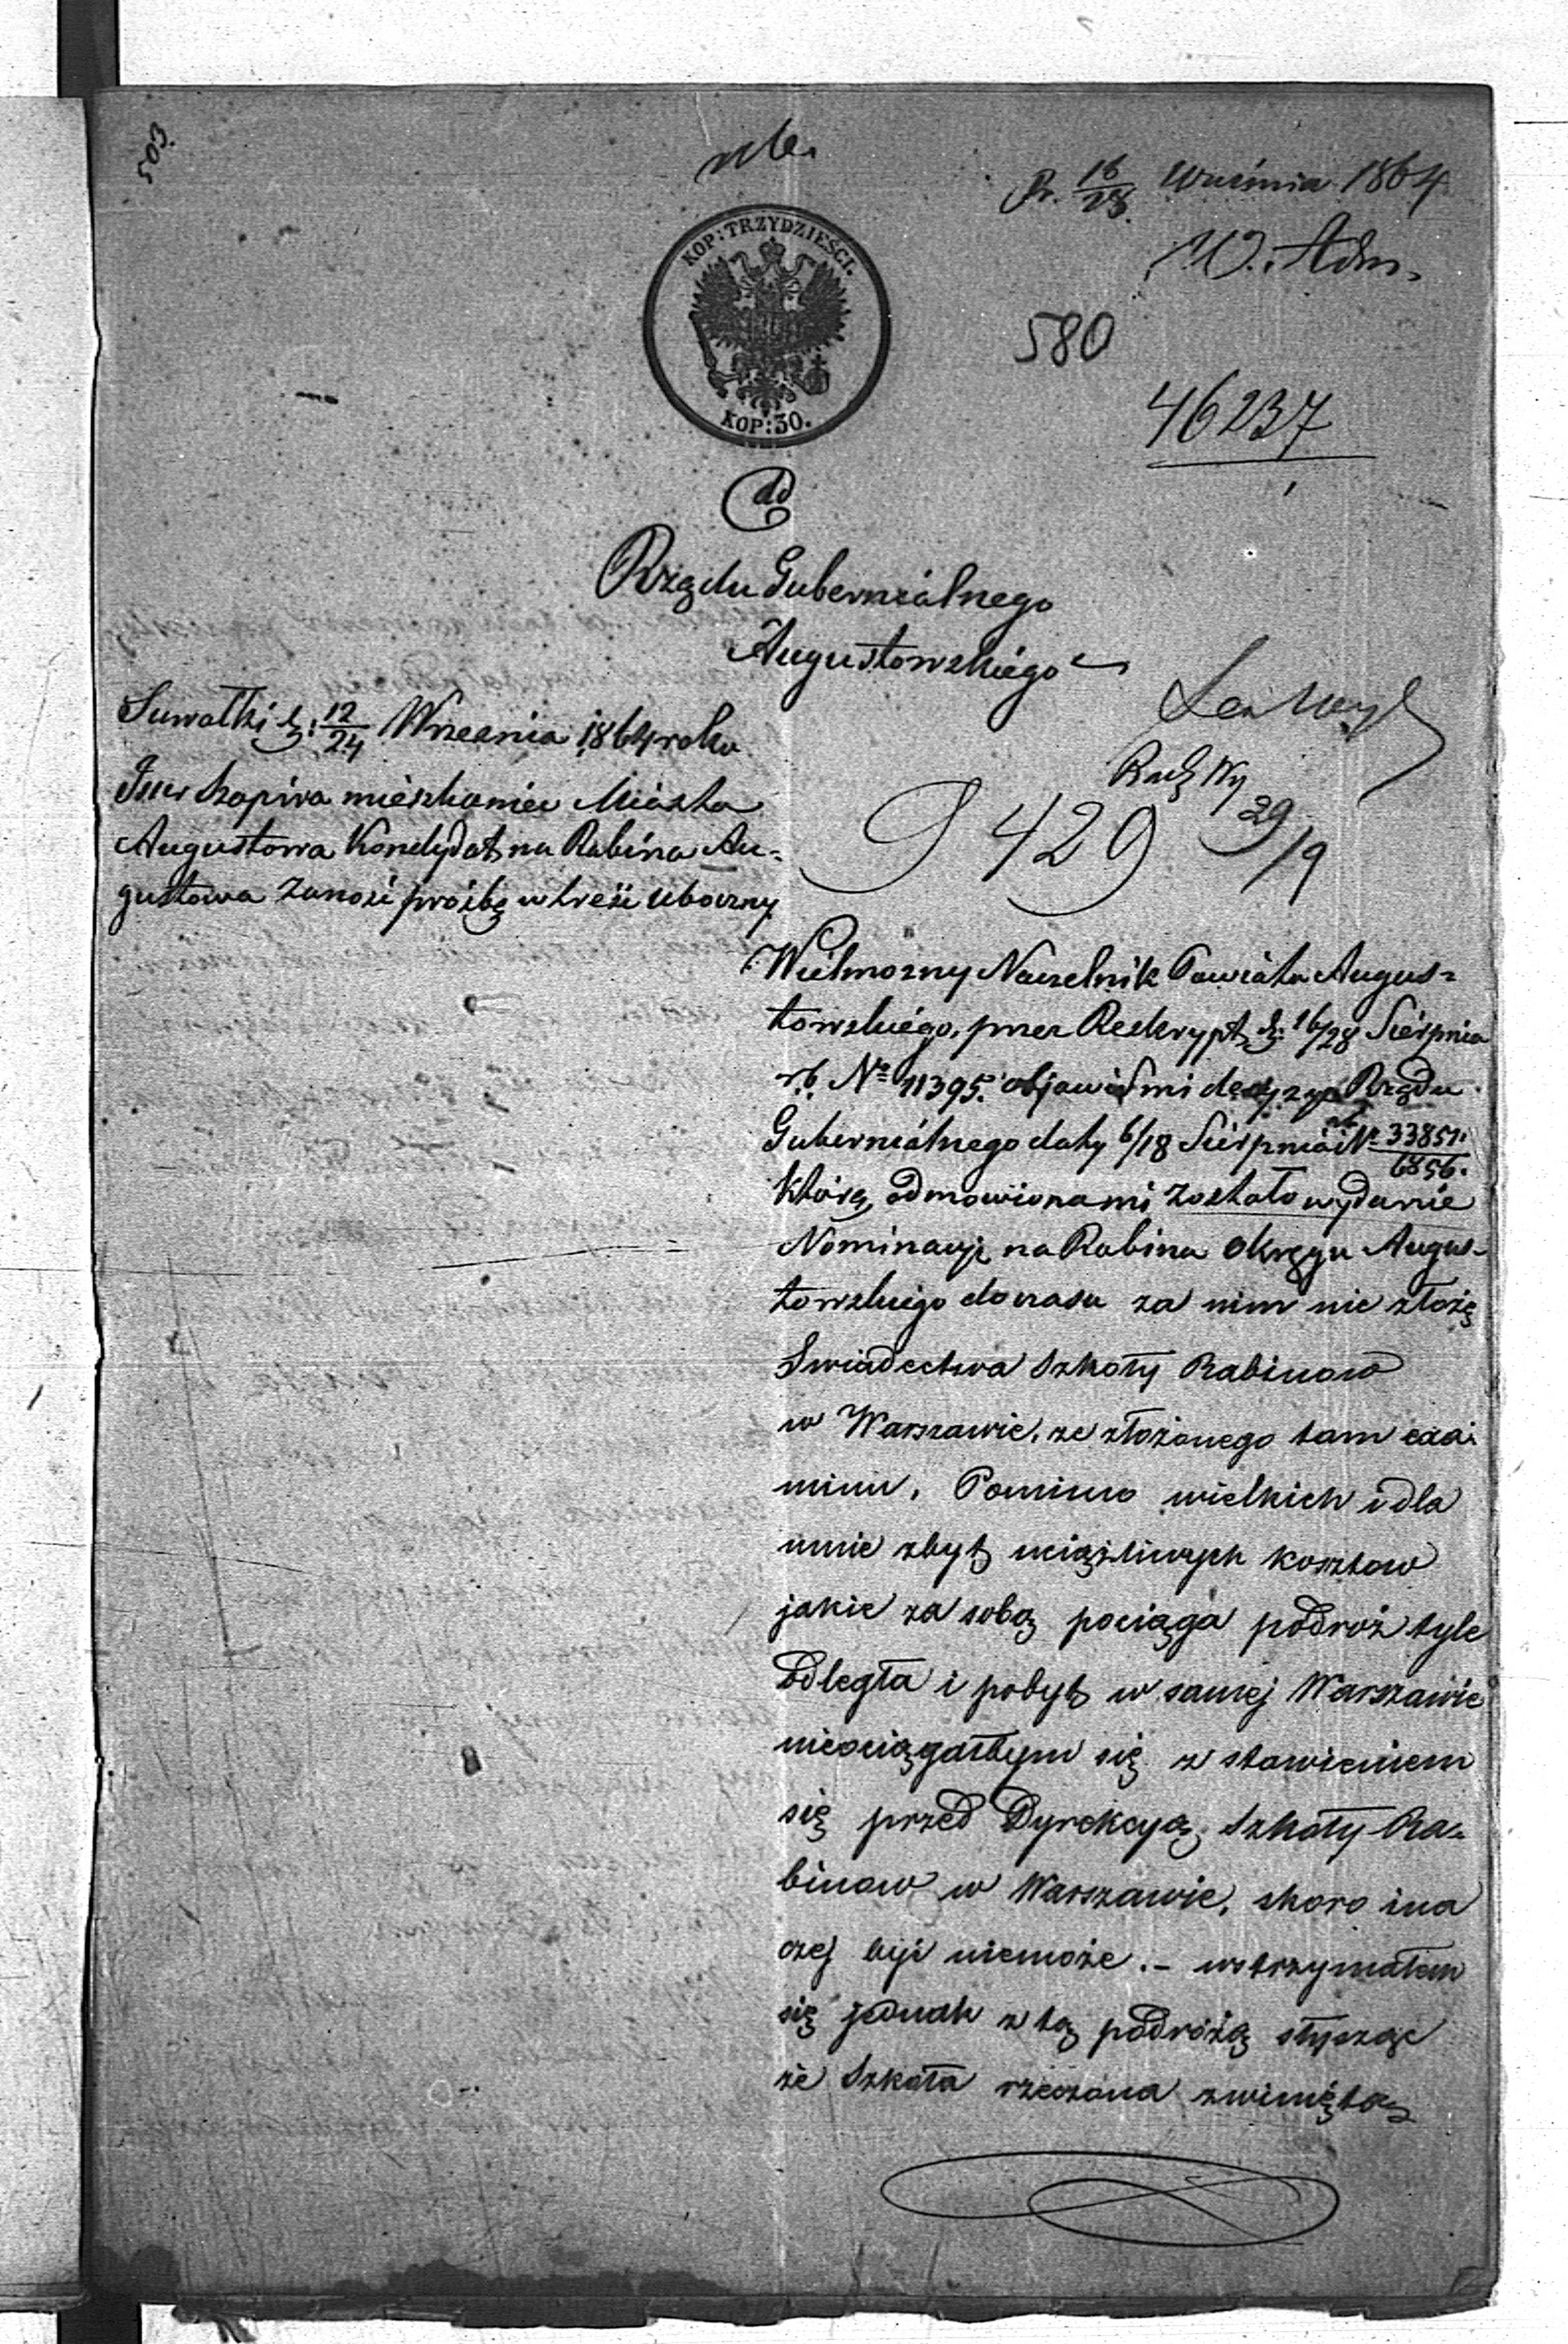 305
Pr. 16/28 Września 1864
W. Adm.
KOP: TRZYDZIEŚCI.
KOP: 30.
580
46237
do
Rządu Gubernialnego
Augustowskiego
Suwałki d: 12/24 Wrzesnia 1864 roku
Szapira mieszkaniec Miasta
Augustowa Kandydat na Rabina Au-
gustowa zanosi prośbę w treści ubocznej
429
29/9
Wielmożny Naczelnik Powiatu Augus-
towskiego, przez Reskrypt d: 16/28 Sierpnia
r.b. Nr 11395. objawił mi decyzyę Rządu
Gubernialnego daty 6/18 Sierpnia Nr 33851/6856.
którą odmowiona mi zostało wydanie
Nominacyi na Rabina Okręgu Augus-
towskiego do czasu za nim nie złożę
Swiadectwa Szkoły Rabinow
w Warszawie, ze złożonego tam exa-
minu. Pomimo wielkich i dla
mnie zbyt uciążliwych kosztow
jakie za sobą pociąga podroż tyle
odległa i pobyt w samej Warszawie
nieociągałbym się z stawieniem
się przed Dyrekcyą Szkoły Ra-
binow w Warszawie, skoro ina
czej być niemoże. – wstrzymałem
się jednak z tą podróżą słysząc
że Szkoła rzeczona zwiniętą